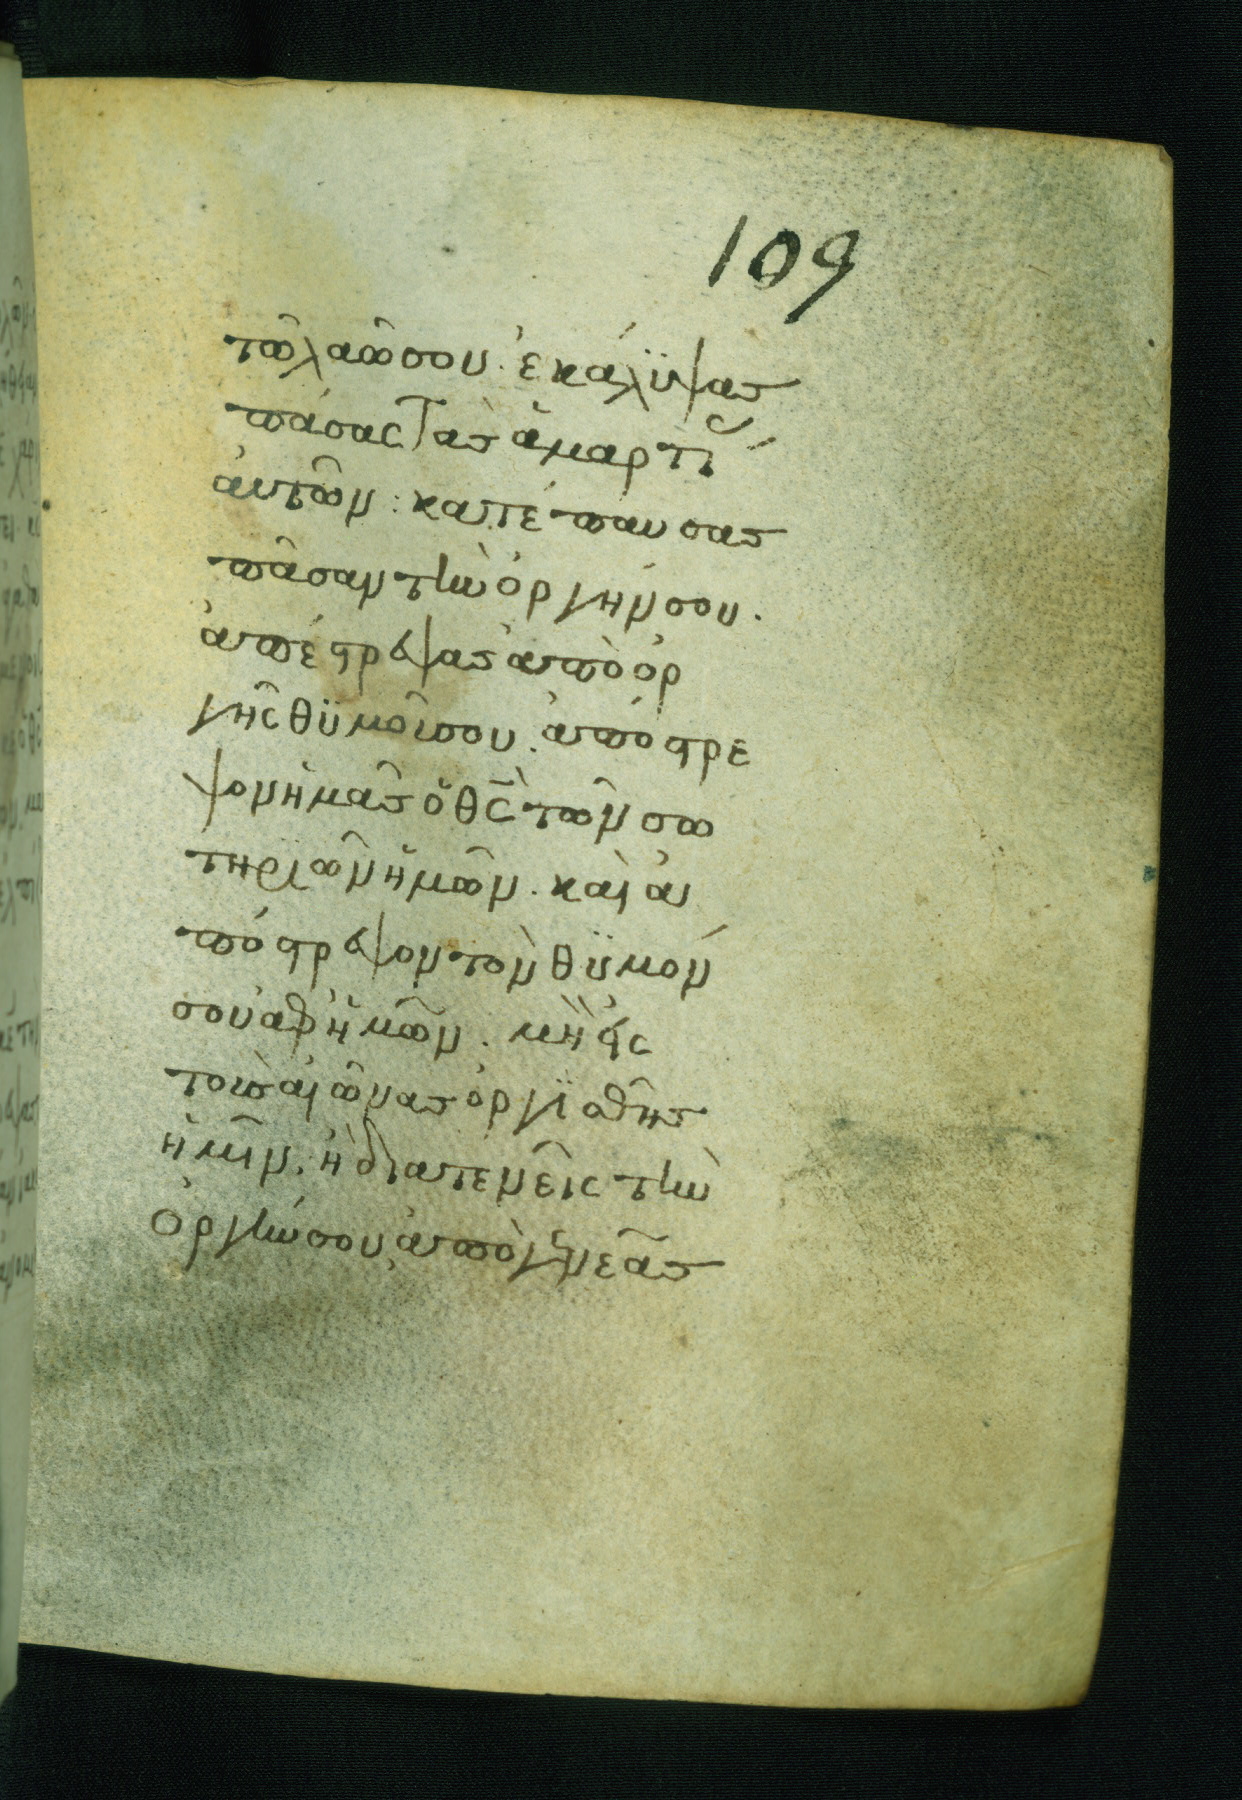 109
τῶ λαῶ σου· ἐκάλϋψας
πάσας τὰς ἁμαρτί
ἀυτῶν: κατέπαυσας
πᾶσαν τὴν ὀργήν σου.
ἀπέστρεψας ἀπὸ ὀρ
γῆς θϋμοῦ σου. ἀπόστρε
ψον ἡμᾶς ὁ θς̅ τῶν σω
τηριῶν ἡμῶν. καὶ ἀ
πόστρεψον τὸν θϋμόν
σου ἀφ ἡμῶν. μὴ εἰς
τοὺς αἰῶνας ὀργϊσθῆς
ἡμῖν. ἢ διατενεῖς τὴν
ὀργήν σου ἀπὸ γενεᾶς